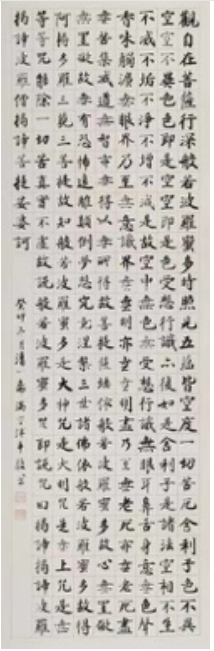 觀自在菩薩行深般若波羅蜜多時照見五蘊皆空度一切苦厄舍利子色不異
空空不異色色即是空空即是色受想行識亦復如是舍利子是諸法空相不生
不滅不垢不淨不增不減是故空中無色無受想行識無眼耳鼻舌身意無色聲
香味觸法無眼界乃至無意識界無無明亦無無明盡乃至無老死亦無老死盡
無苦集滅道無智亦無得以無所得故菩提薩埵依般若波羅蜜多故心無罣礙
無罣礙故無有恐怖遠離顛倒夢想究竟涅槃三世諸佛依般若波羅蜜多故得
阿耨多羅三藐三菩提故知般若波羅蜜多是大神咒是大明咒是無上咒是無
等等咒能除一切苦真實不虛故說般若波羅蜜多咒即說咒曰揭諦揭諦波羅
揭諦波羅僧揭諦菩提娑婆訶
癸卯月